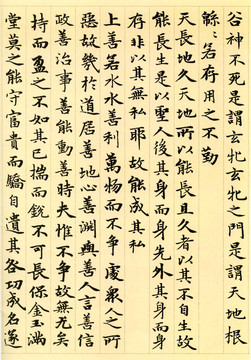 谷神不死是謂玄牝玄牝之門是謂天地根
緜〻若存用之不勤
天長地久天地所以能長且久者以其不自生故
能長生是以聖人後其身而身先外其身而身
存非以其無私耶故能成其私
上善若水水善利萬物而不爭處衆人之所
惡故幾於道居善地心善淵與善人言善信
政善治事善能動善時夫惟不爭故無尤矣
持而盈之不如其已揣而銳不可長保金玉滿
堂莫之能守富貴而驕自遺其咎功成名遂